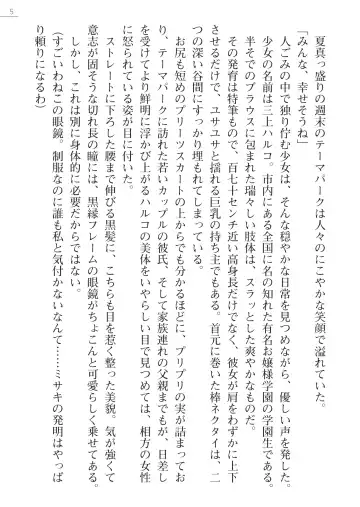 5
夏真っ盛りの週末のテーマパークは人々のにこやかな笑顔で溢れていた。
「みんな、幸せそうね」
人ごみの中で独り佇む少女は、そんな穏やかな日常を見つめながら、優しい声を発した。
少女の名前は三上ハルコ。市内にある全国に名の知れた有名お嬢様学園の学園生である。
半そでのブラウスに包まれた瑞々しい肢体は、スラッとした爽やかなものだ。
その発育は特筆もので、百七十センチ近い高身長だけでなく、彼女が肩をわずかに上下
させるだけで、ユサユサと揺れる巨乳の持ち主でもある。首元に巻いた棒ネクタイは、二
つの深い谷間にすっかり埋もれてしまっている。
お尻も短めのプリーツスカートの上からでも分かるほどに、プリプリの実が詰まってお
り、テーマパークに訪れた若いカップルの彼氏、そして家族連れの父親までもが、日差し
を受けてより鮮明に浮かび上がるハルコの美体をいやらしい目で見つめては、相方の女性
に怒られている姿が目に付いた。
ストレートに下ろした腰まで伸びる黒髪に、こちらも目を惹く整った美貌。気が強くて
意志が固そうな切れ長の瞳には、黒縁フレームの眼鏡がちょこんと可愛らしく乗せてある。
しかし、これは別に身体的に必要だからではない。
(すごいわねこの眼鏡。制服なのに誰も私と気付かないなんて……ミサキの発明はやっぱ
り頼りになるわ)